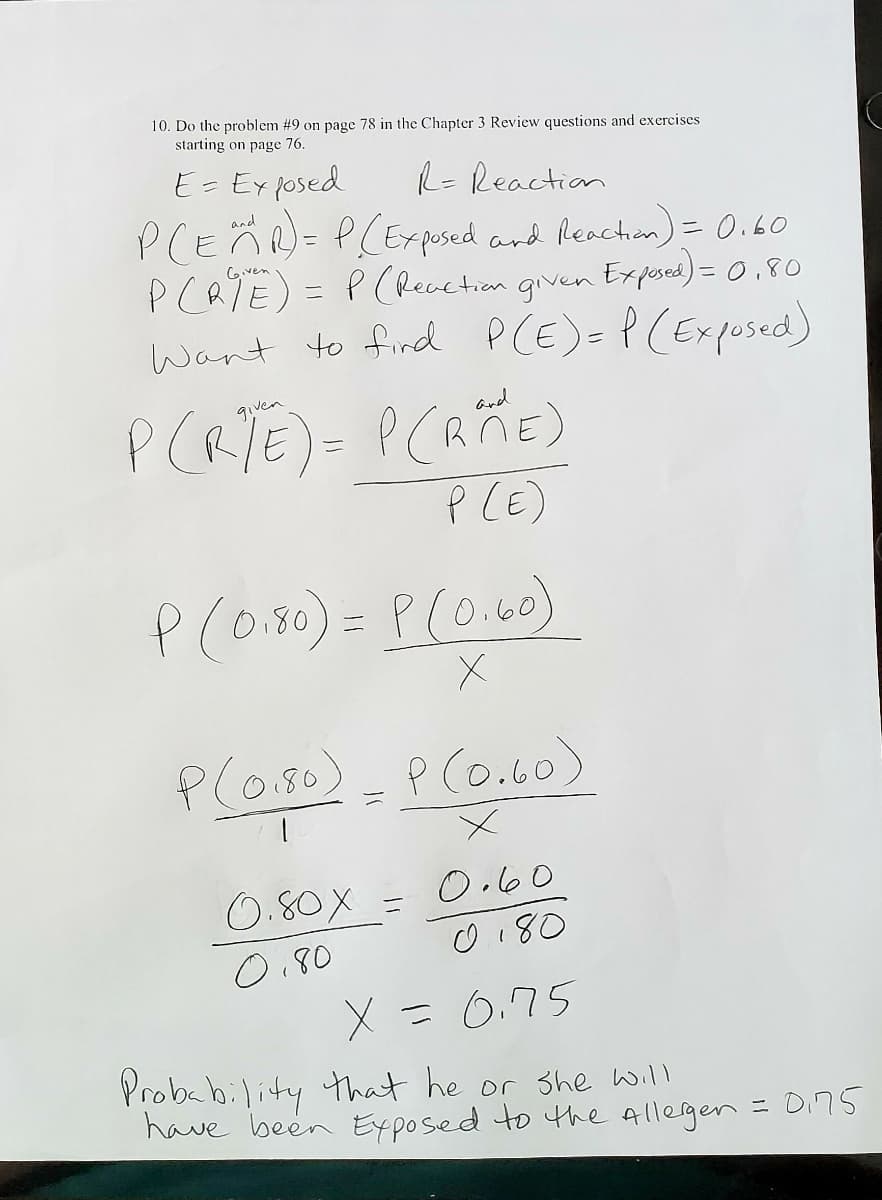 10. Do the problem #9 on page 78 in the Chapter 3 Review questions and exercises
starting on page 76.
E = Exposed R = Reaction
and
P(E ∩ R) = P(Exposed and Reaction) = 0.60
Given
P(R/E) = P(Reaction given Exposed) = 0.80
Want to find P(E) = P(Exposed)
given and
P(R/E) = P(R ∩ E)
P(E)
P(0.80) = P(0.60)
X
P(0.80) = P(0.60)
1 X
0.80X = 0.60
0.80 0.80
X = 0.75
Probability that he or she will
have been Exposed to the Allergen = 0.75